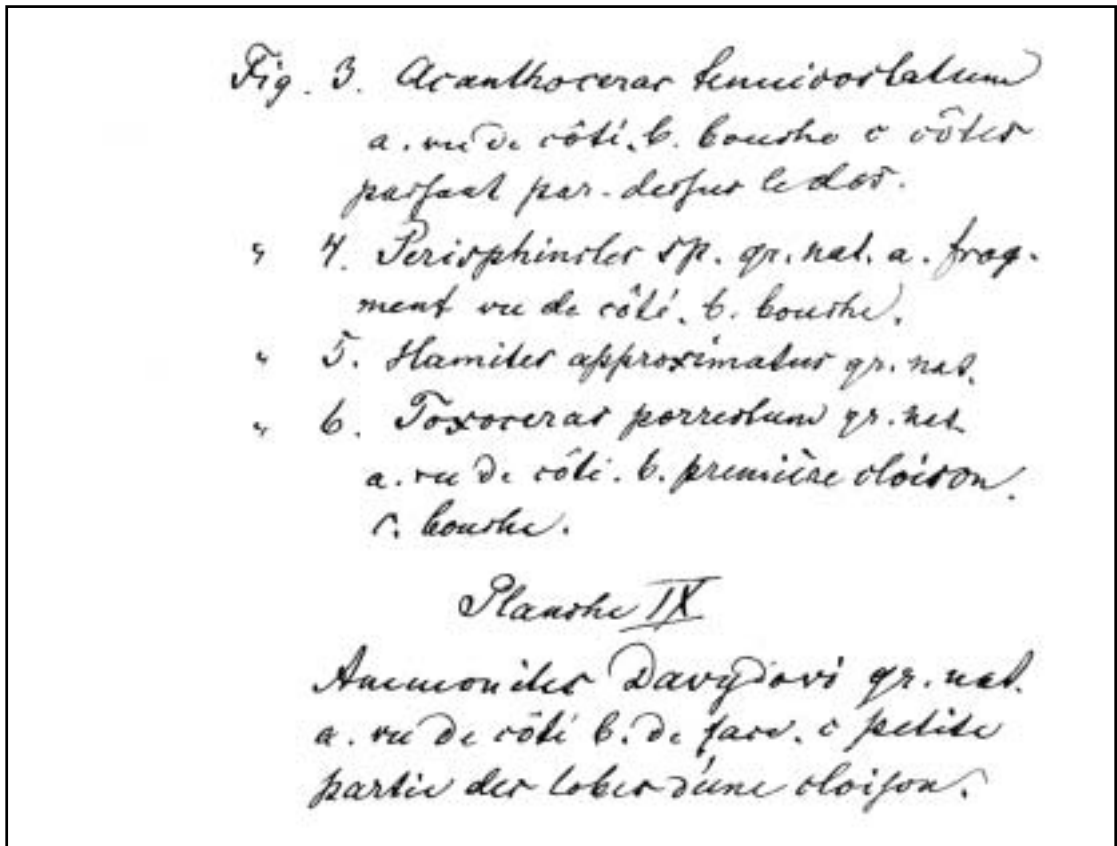 Fig. 3. Acanthoceras tenuicostatum
a. vu de côté. b. bouche c côtes
passant par-dessus le dos.
" 4. Perisphinctes sp. gr. nat. a. frag-
ment vu de côté. b. bouche.
" 5. Hamites approximatus gr. nat.
" 6. Toxoceras porrectum gr. nat.
a. vu de côté. b. première cloison.
c. bouche.
Planche IX
Ammonites Davydovi gr. nat.
a. vu de côté b. de face. c petite
partie des lobes d'une cloison.